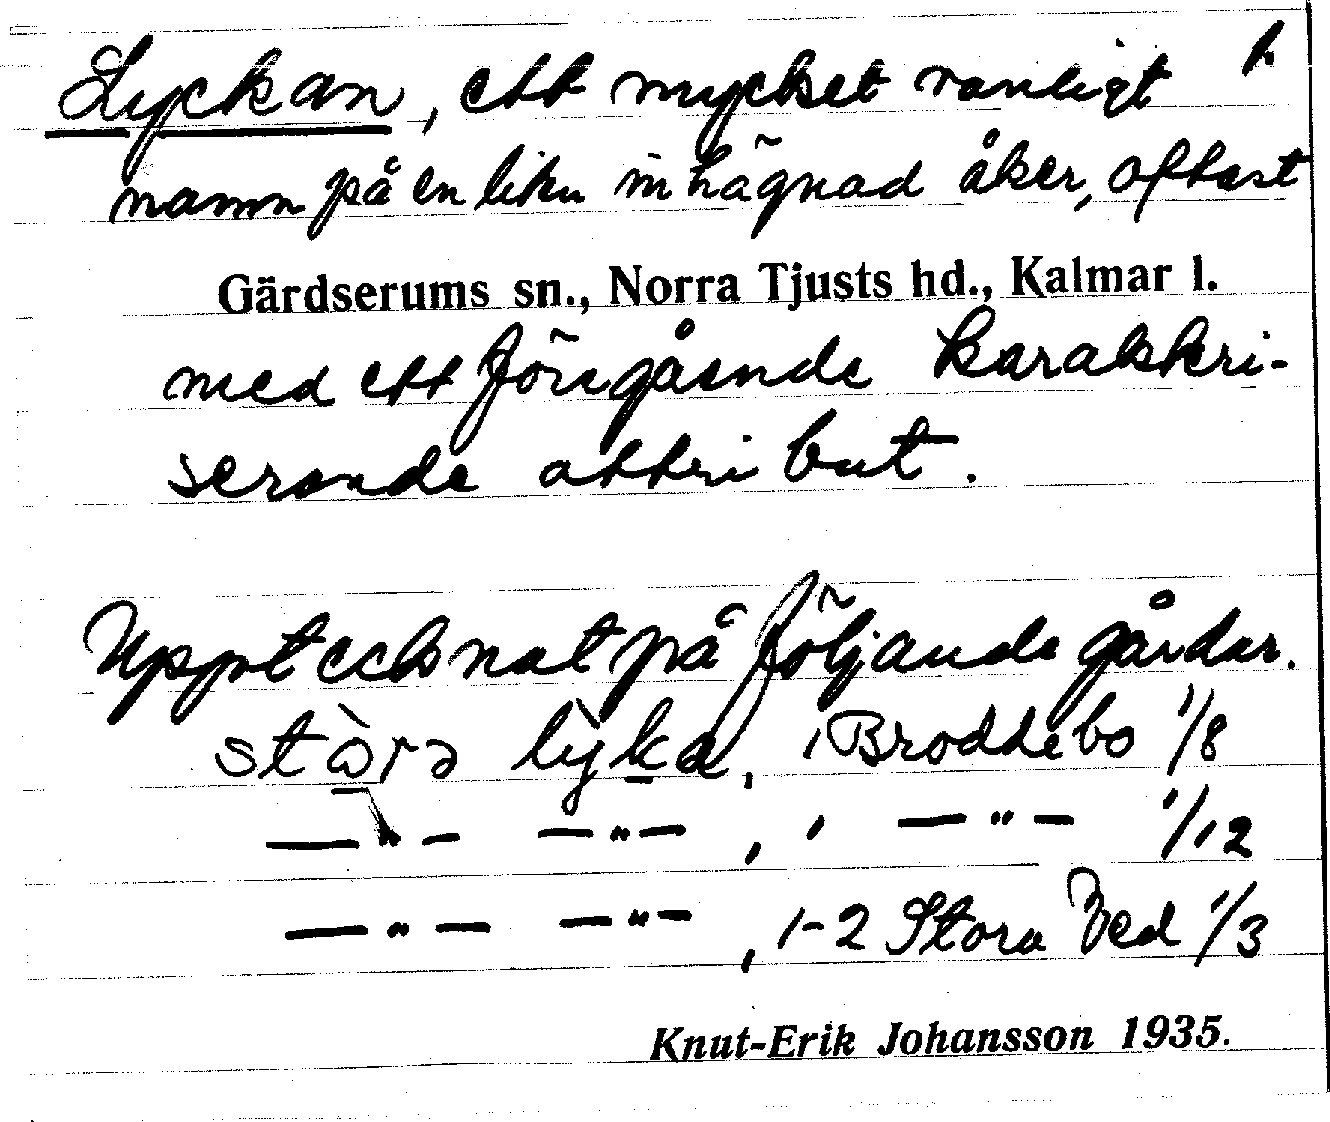 Lyckan, ett mycket vanligt 1.
namn på en liten inhägnad åker, oftast
Gärdserums sn., Norra Tjusts hd., Kalmar l.
med ett föregående karakteri-
serande attribut.
Upptecknat på följande gårdar.
stòra lỳka, 1 Broddebo 1/8
—"— —"—, 1 —"— 1/12
—"— —"—, 1-2 Stora Bed 1/3
Knut-Erik Johansson 1935.